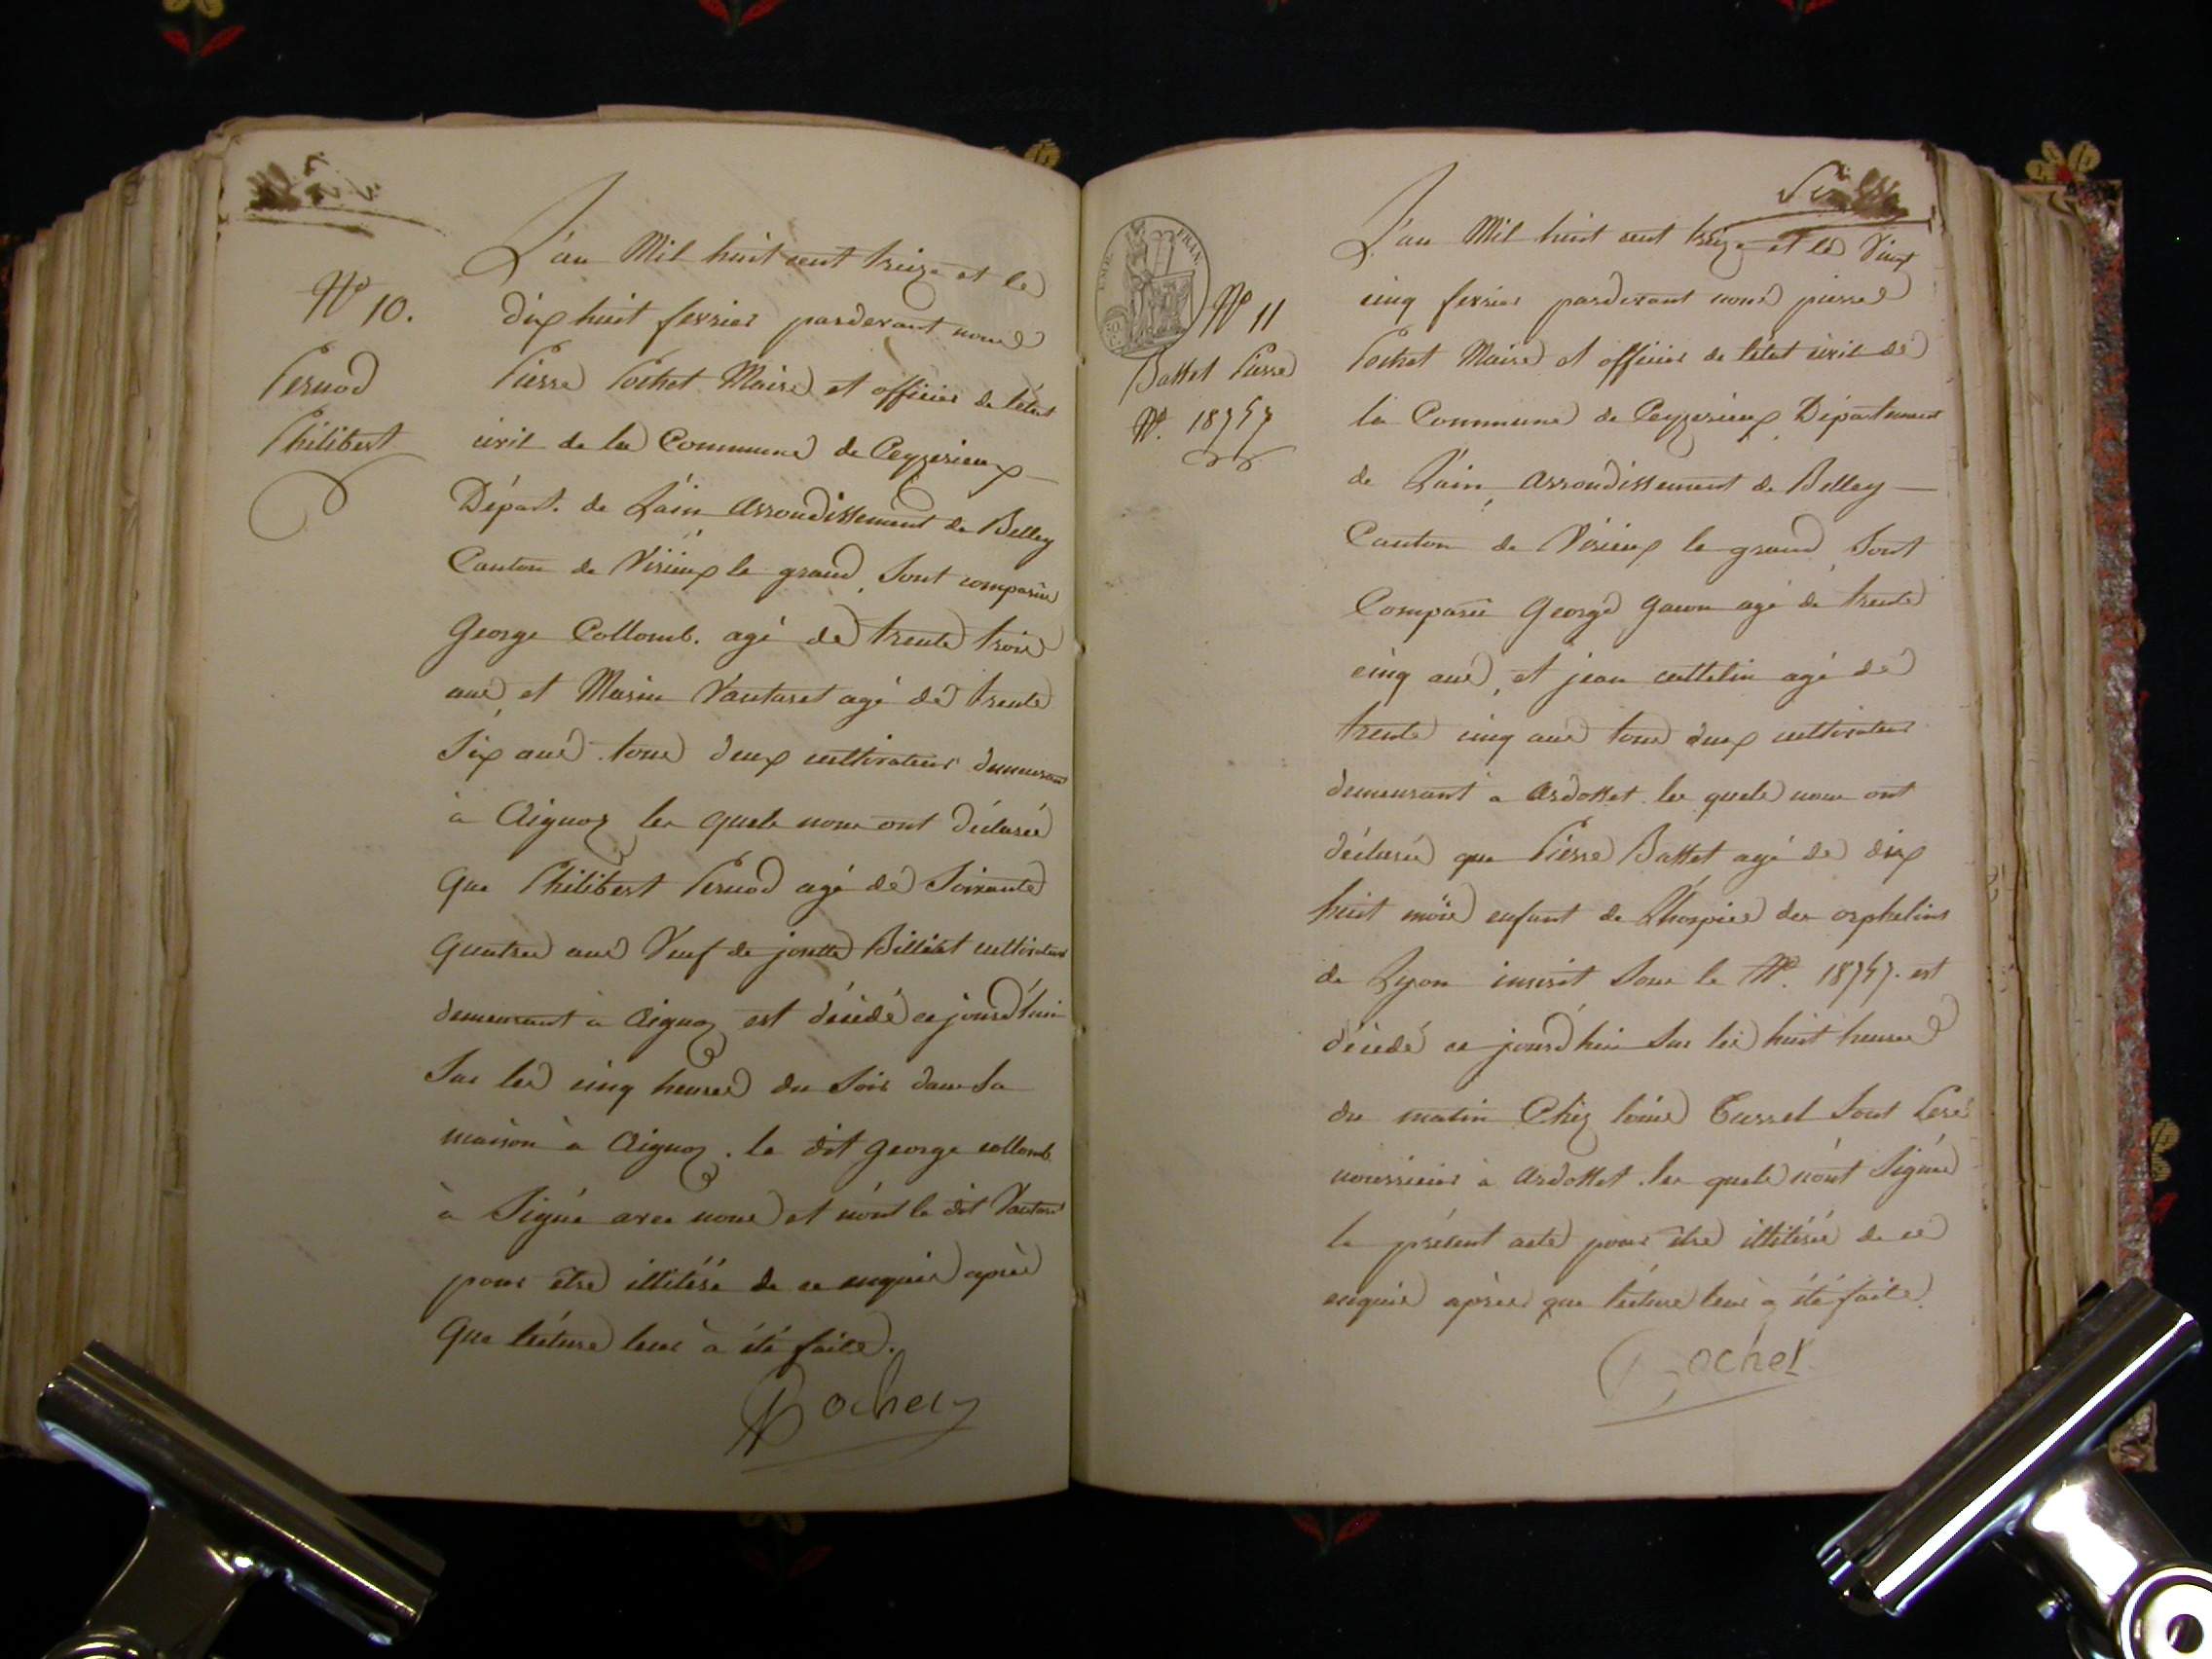 N° 10.
Pernod
Philibert
L'an Mil huit cent treize et le
dix huit fevrier pardevant nous
Pierre Pochet Maire et officier de l'état
civil de la Commune de Ceyzerieux
Départ. de L'ain, arrondissement de Belley
Canton de Virieux le grand, Sont comparus
George Collomb. agé de trente trois
ans, et Marin Vautaret agé de trente
Six ans tous deux cultivateurs demeurant
à Aignoz les quels nous ont déclaré
Que Philibert Pernod agé de Soixante
Quatre ans Veuf de josette Billiet cultivateur
demeurant à Aignoz est décédé ce jourd'hui
Sur les cinq heures du Soir dans Sa
maison à Aignoz. le dit George collomb
à Signé avec nous et n'ont le dit Vautaret
pour être illitéré de ce enquis après
Que lecture leur à été faite.
Pochet
EMP. FRAN.
N° 11
Battet Pierre
N°. 18757
L'an Mil huit cent treize et le Vingt
cinq fevrier pardevant nous pierre
Pochet Maire et officier de l'etat civil de
la Commune de Ceyzerieux Département
de L'ain, arrondissement de Belley
Canton de Virieux le grand, Sont
Comparu George gacon agé de trente
cinq ans, et jean cuttelin agé de
trente cinq ans tous deux cultivateur
demeurant à Ardosset. les quels nous ont
déclaré que Pierre Battet agé de dix
huit mois enfant de L'hospice des orphelins
de Lyon inscrit Sous le N°. 18757. est
décédé ce jourd'hui Sur les huit heures
du matin Chez louis Cussel Sont Peré
nourricier à Ardosset. les quels n'ont Signé
le présent acte pour être illitéré de ce
enquis après que lecture leur à été faite.
Pochet